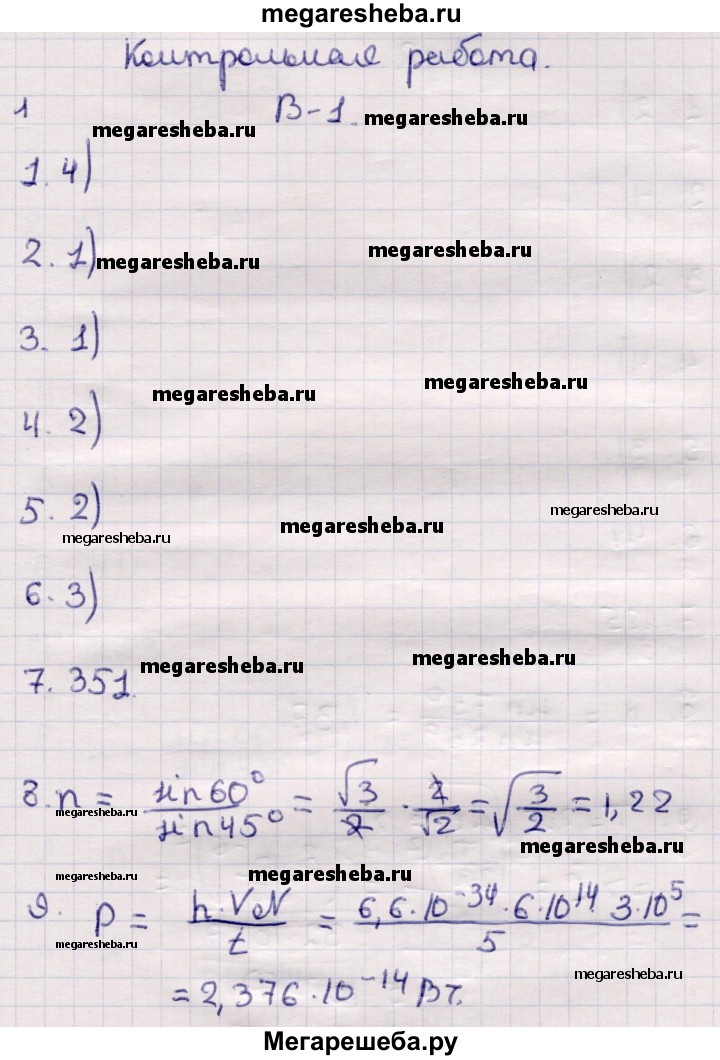 megaresheba.ru
Контрольная работа.
1 В-1.
megaresheba.ru megaresheba.ru
1. 4)
2. 1)
megaresheba.ru megaresheba.ru
3. 1)
megaresheba.ru megaresheba.ru
4. 2)
5. 2)
megaresheba.ru megaresheba.ru megaresheba.ru
6. 3)
7. 351
megaresheba.ru megaresheba.ru
8. n = sin60° / sin45° = √3/2 · 2/√2 = √(3/2) = 1,22
megaresheba.ru megaresheba.ru
megaresheba.ru megaresheba.ru
9. P = h·VeN / t = 6,6·10⁻³⁴·6·10¹⁴ 3·10⁵ / 5 =
megaresheba.ru megaresheba.ru
= 2,376·10⁻¹⁴Вт.
Мегарешеба.ру